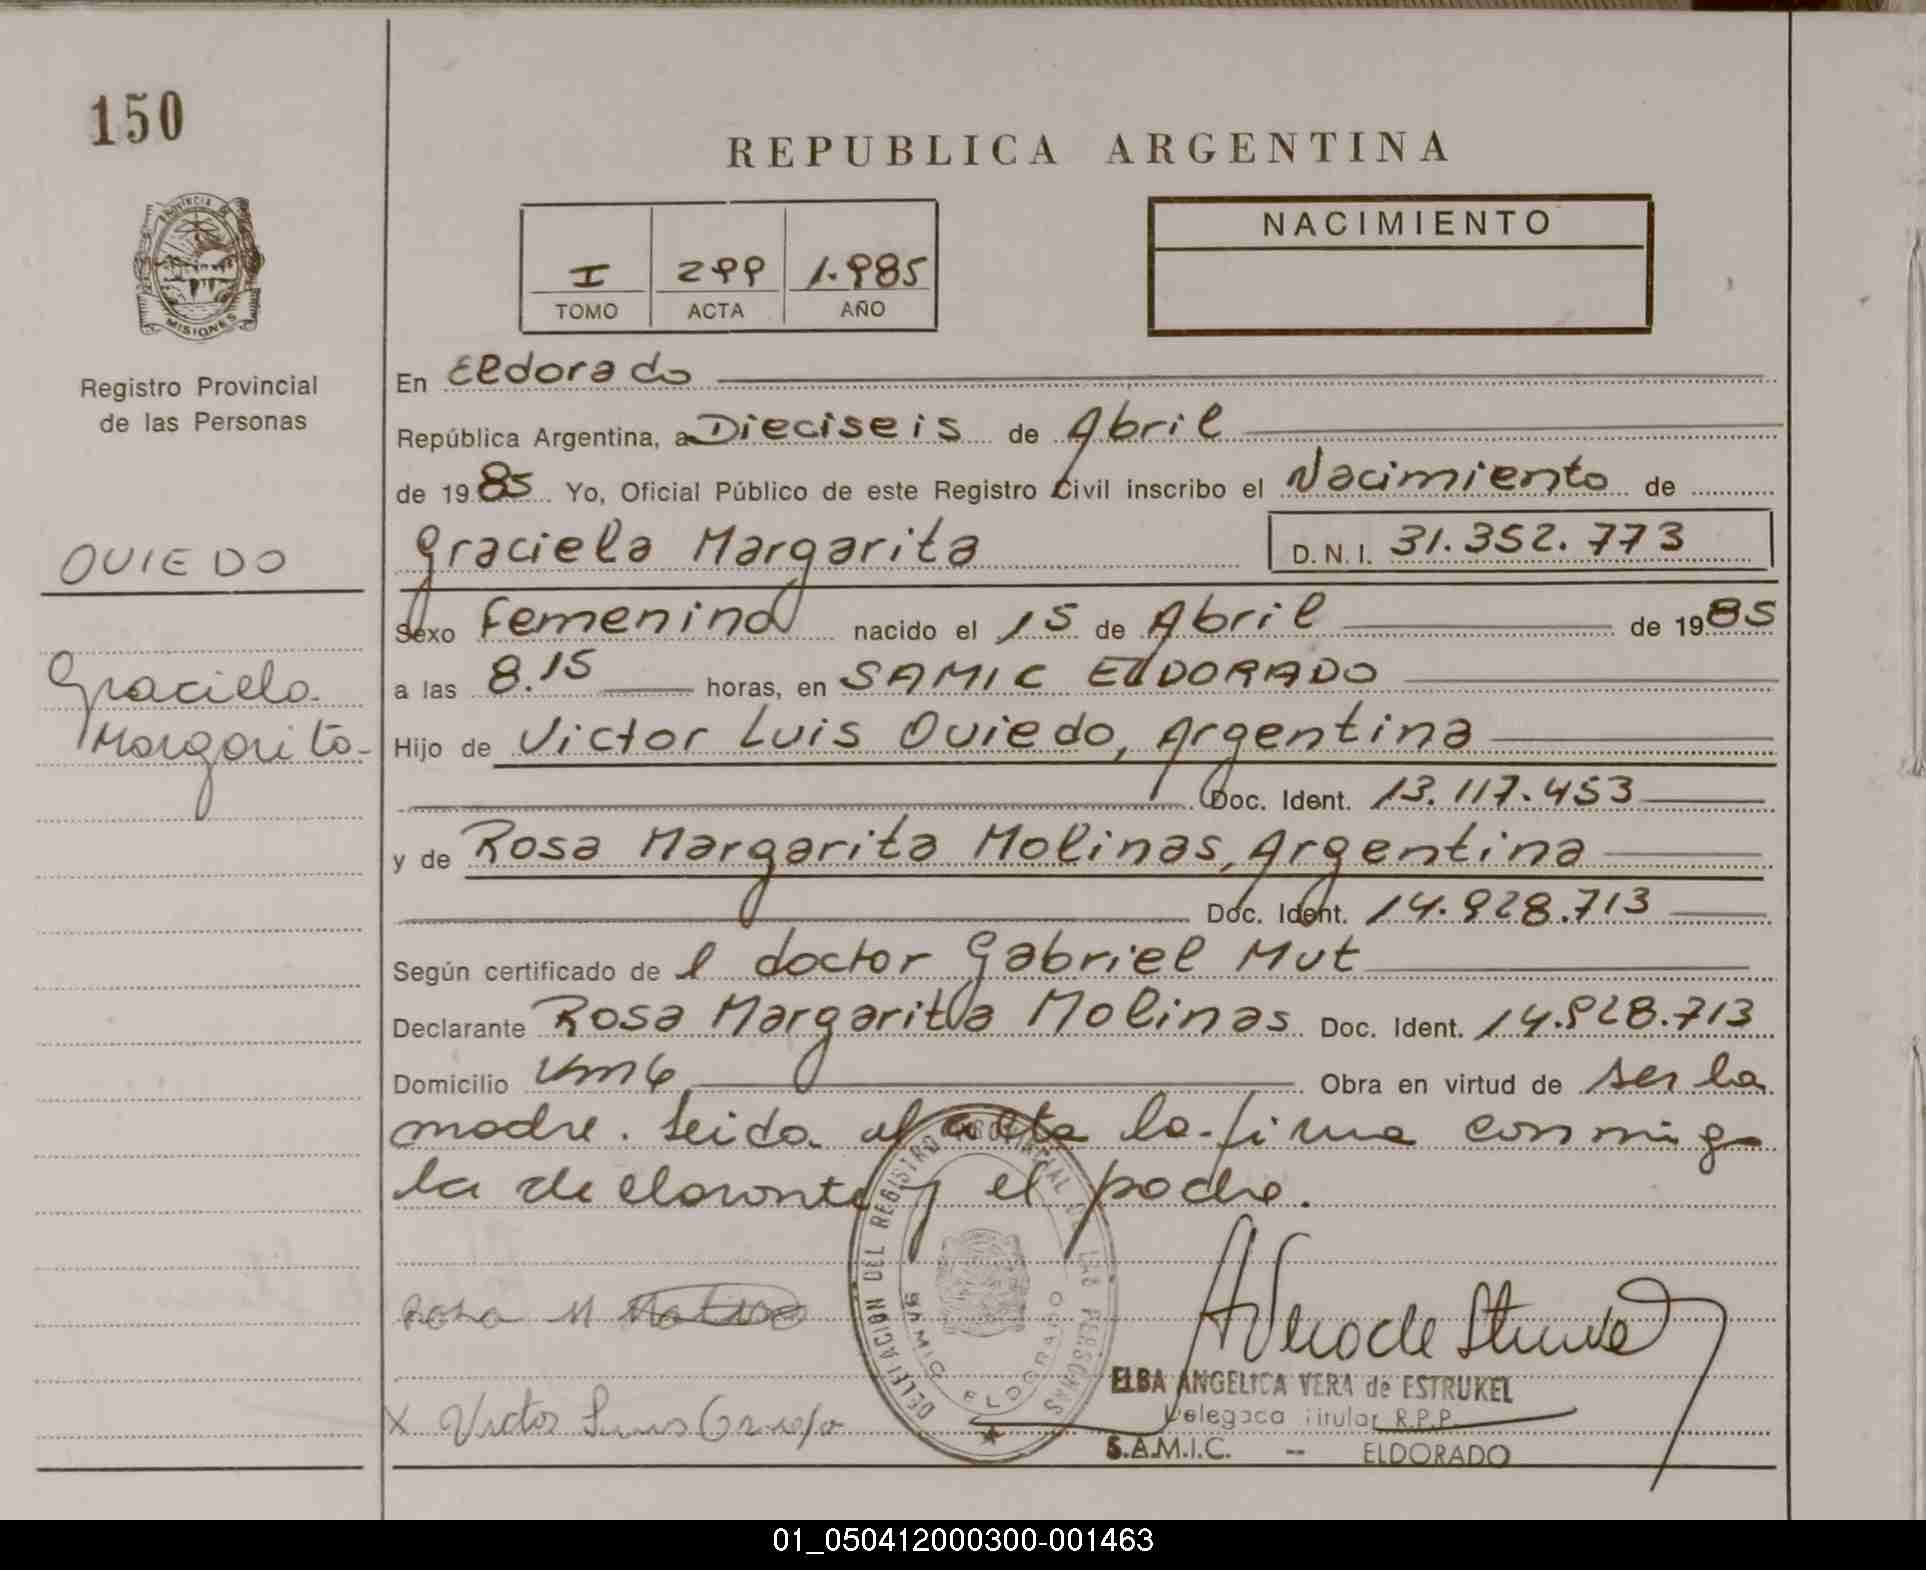 150
REPUBLICA ARGENTINA
PROVINCIA DE
MISIONES
Registro Provincial
de las Personas
OVIEDO
Graciela
Margarita-
I 299 1.985
TOMO ACTA AÑO
NACIMIENTO
En Eldorado
República Argentina, a Dieciseis de Abril
de 1985 Yo, Oficial Público de este Registro Civil inscribo el Nacimiento de
Graciela Margarita D.N.I. 31.352.773
Sexo Femenino nacido el 15 de Abril de 1985
a las 8.15 horas, en SAMIC ElDORADO
Hijo de Victor Luis Oviedo, Argentina
Doc. Ident. 13.117.453
y de Rosa Margarita Molinas, Argentina
Doc. Ident. 14.928.713
Según certificado de l doctor Gabriel Mut
Declarante Rosa Margarita Molinas Doc. Ident. 14.928.713
Domicilio Km 6 Obra en virtud de ser la
madre. Leida el acta la firma conmigo
la declarante y el padre.
Rosa M
X Victor Luis Oviedo
DELEGACION DEL REGISTRO PROVINCIAL DE LAS PERSONAS
SAMIC ELDORADO
ELBA ANGELICA VERA de ESTRUKEL
Delegada Titular R.P.P.
S.A.M.I.C. -- ELDORADO
01_050412000300-001463